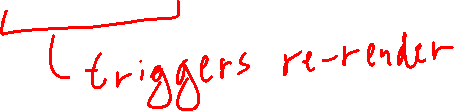 triggers re-render